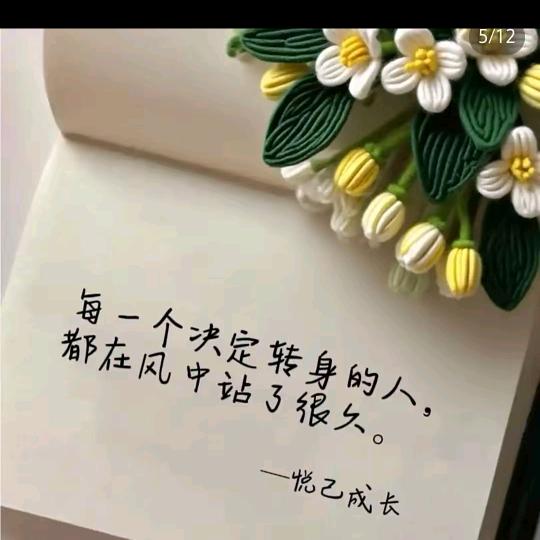 5/12
每一个决定转身的人，
都在风中站了很久。
—悦己成长